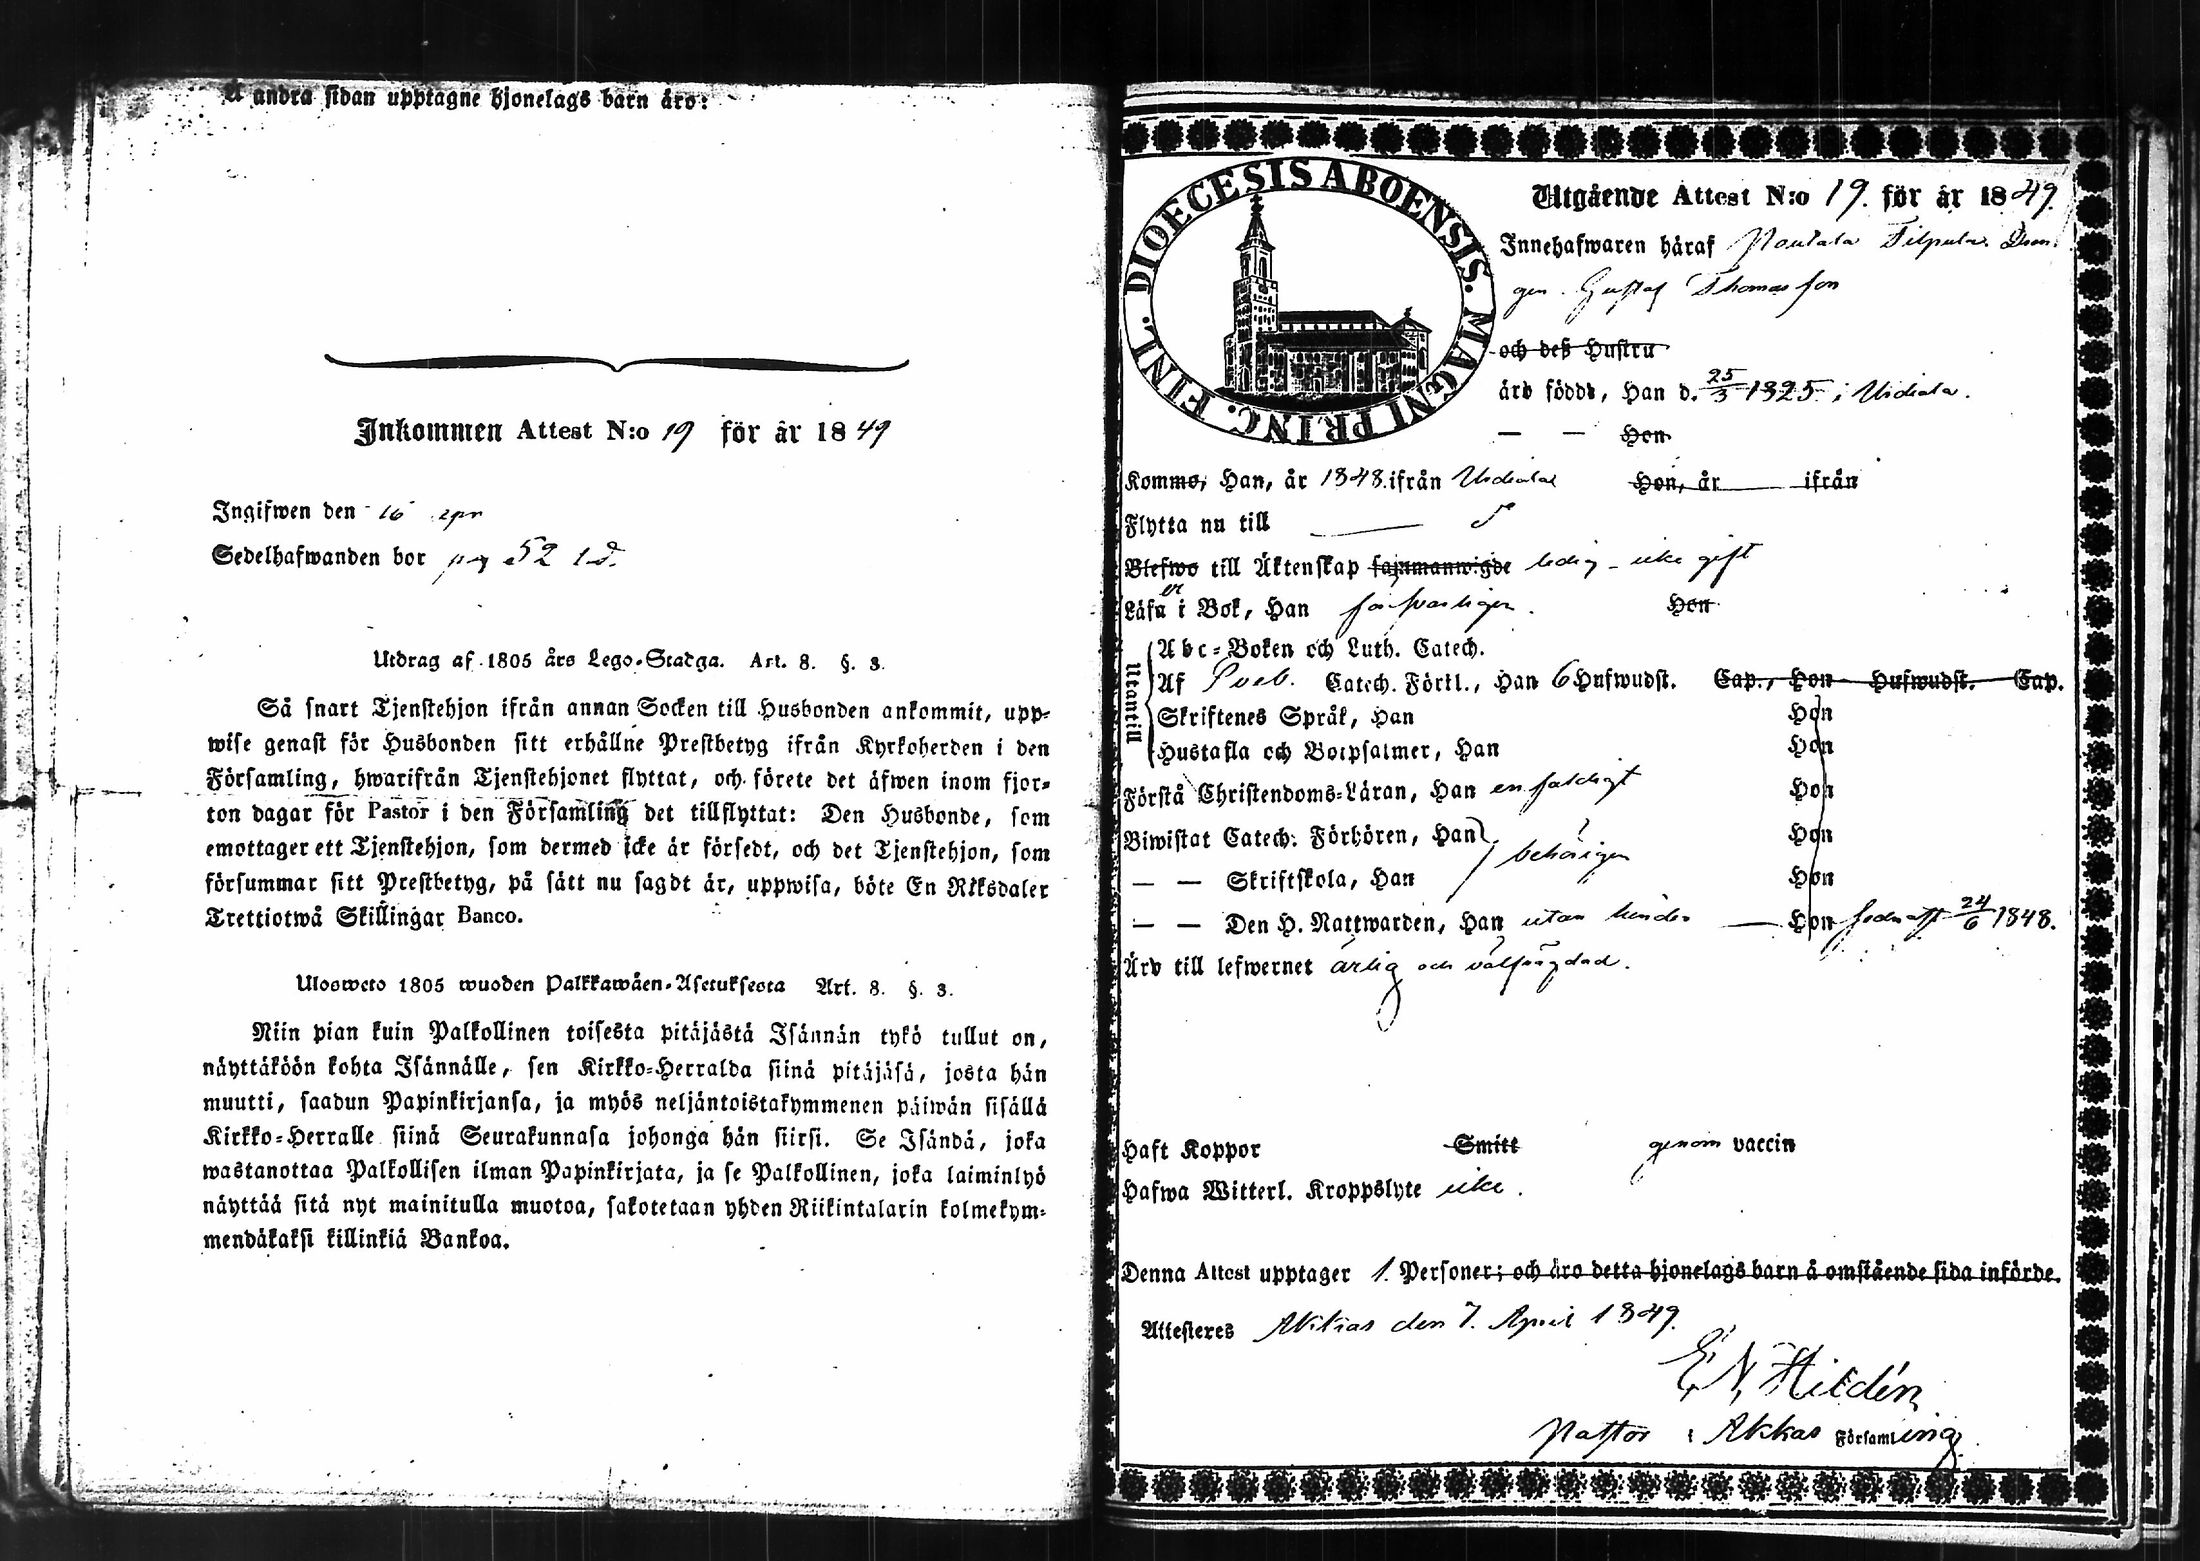 Å andra sidan upptagne hjonelags barn äro:
Inkommen Attest N:o 19 för år 1849
Ingifwen den 16 apr
Sedelhafwanden bor pag 52
Utdrag af 1805 års Lego-Stadga. Art. 8. §. 3.
Så snart Tjenstehjon ifrån annan Socken till Husbonden ankommit, upp-
wise genast för Husbonden sitt erhållne Prestbetyg ifrån Kyrkoherden i den
Församling, hwarifrån Tjenstehjonet flyttat, och förete det äfwen inom fjor-
ton dagar för Pastor i den Församling det tillflyttat: Den Husbonde, som
emottager ett Tjenstehjon, som dermed icke är försedt, och det Tjenstehjon, som
försummar sitt Prestbetyg, på sätt nu sagdt är, uppwisa, böte En Riksdaler
Trettiotwå Skillingar Banco.
Ulosweto 1805 wuoden Palkkawäen-Asetuksesta Art. 8. §. 3.
Niin pian kuin Palkollinen toisesta pitäjästä Isännän tykö tullut on,
näyttäköön kohta Isännälle, sen Kirkko-Herralda siinä pitäjäsä, josta hän
muutti, saadun Papinkirjansa, ja myös neljäntoistakymmenen päiwän sisällä
Kirkko-Herralle siinä Seurakunnasa johonga hän siirsi. Se Isändä, joka
wastanottaa Palkollisen ilman Papinkirjata, ja se Palkollinen, joka laiminlyö
näyttää sitä nyt mainitulla muotoa, sakotetaan yhden Riikintalarin kolmekym-
mendäkaksi killinkiä Bankoa.
DIOECESIS ABOENSIS. MAGNI PRINC. FINL.
Utgående Attest N:o 19. för år 1849.
Innehafwaren häraf Nautala Tilpula Dren-
gen Gustaf Thomasson
och deß Hustru
äro födde, Han d. 25/3 1825 i Urdiala.
— — Hon
Komme, Han, år 1848 ifrån Urdiala Hon, år ifrån
Flytta nu till
Blefwo till Äktenskap sammanwigde ledig - icke gift
Läsa i Bok, Han försvarligen. Hon
Utantill
Abc-Boken och Luth. Catech.
Af Sveb. Catech. Förkl., Han 6 Hufwudst. Cap., Hon Hufwudst. Cap.
Skriftenes Språk, Han Hon
Hustafla och Botpsalmer, Han Hon
Förstå Christendoms-Läran, Han enfaldigt Hon
Biwistat Catech. Förhören, Han behörigen Hon
— — Skriftskola, Han Hon
— — Den H. Nattwarden, Han utan hinder — Hon sednast 24/6 1848.
Äro till lefwernet ärlig och välfrägdad.
Haft Koppor Smitt genom vaccin
Hafwa Witterl. Kroppslyte icke.
Denna Attest upptager 1. Personer; och äro detta hjonelags barn å omstående sida införde.
Attesteres Akkas den 7. April 1849.
E N Hildén
Pastor i Akkas Församling.